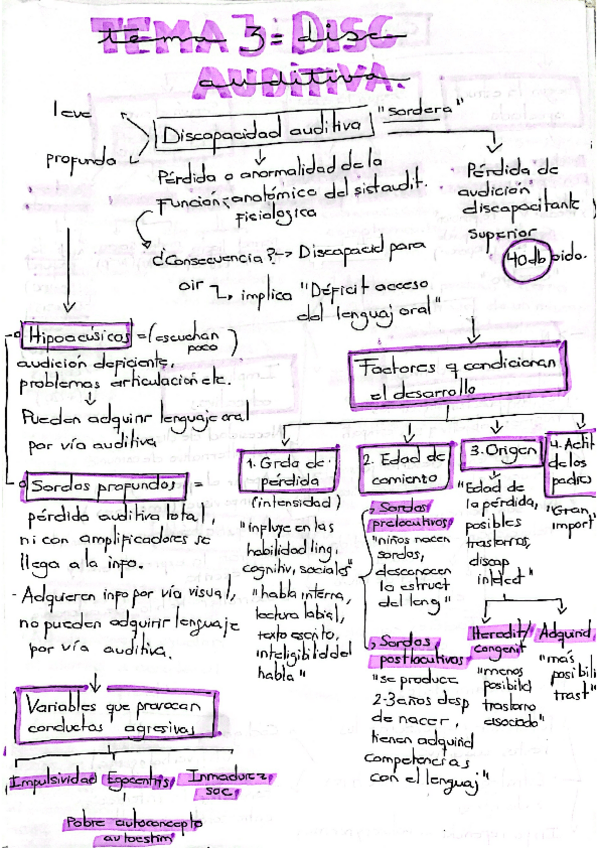 TEMA 3= DISC
AUDITIVA.
leve
profunda
Discapacidad auditiva
"sordera"
Pérdida o anormalidad de la
Función anatómico del sist audit.
fisiologica
¿Consecuencia? -> Discapacid para
oir ↳ implica "Déficit acceso
del lenguaj oral"
Pérdida de
audición
discapacitante
superior
40db oido.
Hipoacúsicos = (escuchan
poco)
audición deficiente,
problemas articulación etc.
Pueden adquirir lenguaje oral
por vía auditiva
Sordos profundos =
pérdida auditiva total,
ni con amplificadores se
llega a la info.
- Adquieren info por vía visual,
no pueden adquirir lenguaje
por vía auditiva.
Variables que provocan
conductas agresivas
Impulsividad Egocentris Inmadurez
soc.
Pobre autoconcepto
autoestim
Factores q condicionan
el desarrollo
1. Grdo de
pérdida
(intensidad)
"influye en las
habilidad ling,
cognitiv, sociales"
"habla interna,
lectura labial,
texto escrito,
inteligibilid del
habla"
2. Edad de
comiento
Sordos
prelocutivos
"niños nacen
sordos,
desconocen
la estruct
del leng"
Sordos
postlocutivos
"se produce
2-3 años desp
de nacer,
tienen adquirid
competencias
con el lenguaj"
3. Origen
"Edad de
la pérdida,
posibles
trastornos,
discap
intelect"
Heredit/
congenit
"menos
posibilid
trastorno
asociado"
Adquirid
"más
posibili
trast"
4. Actit
de los
padres
"Gran
import